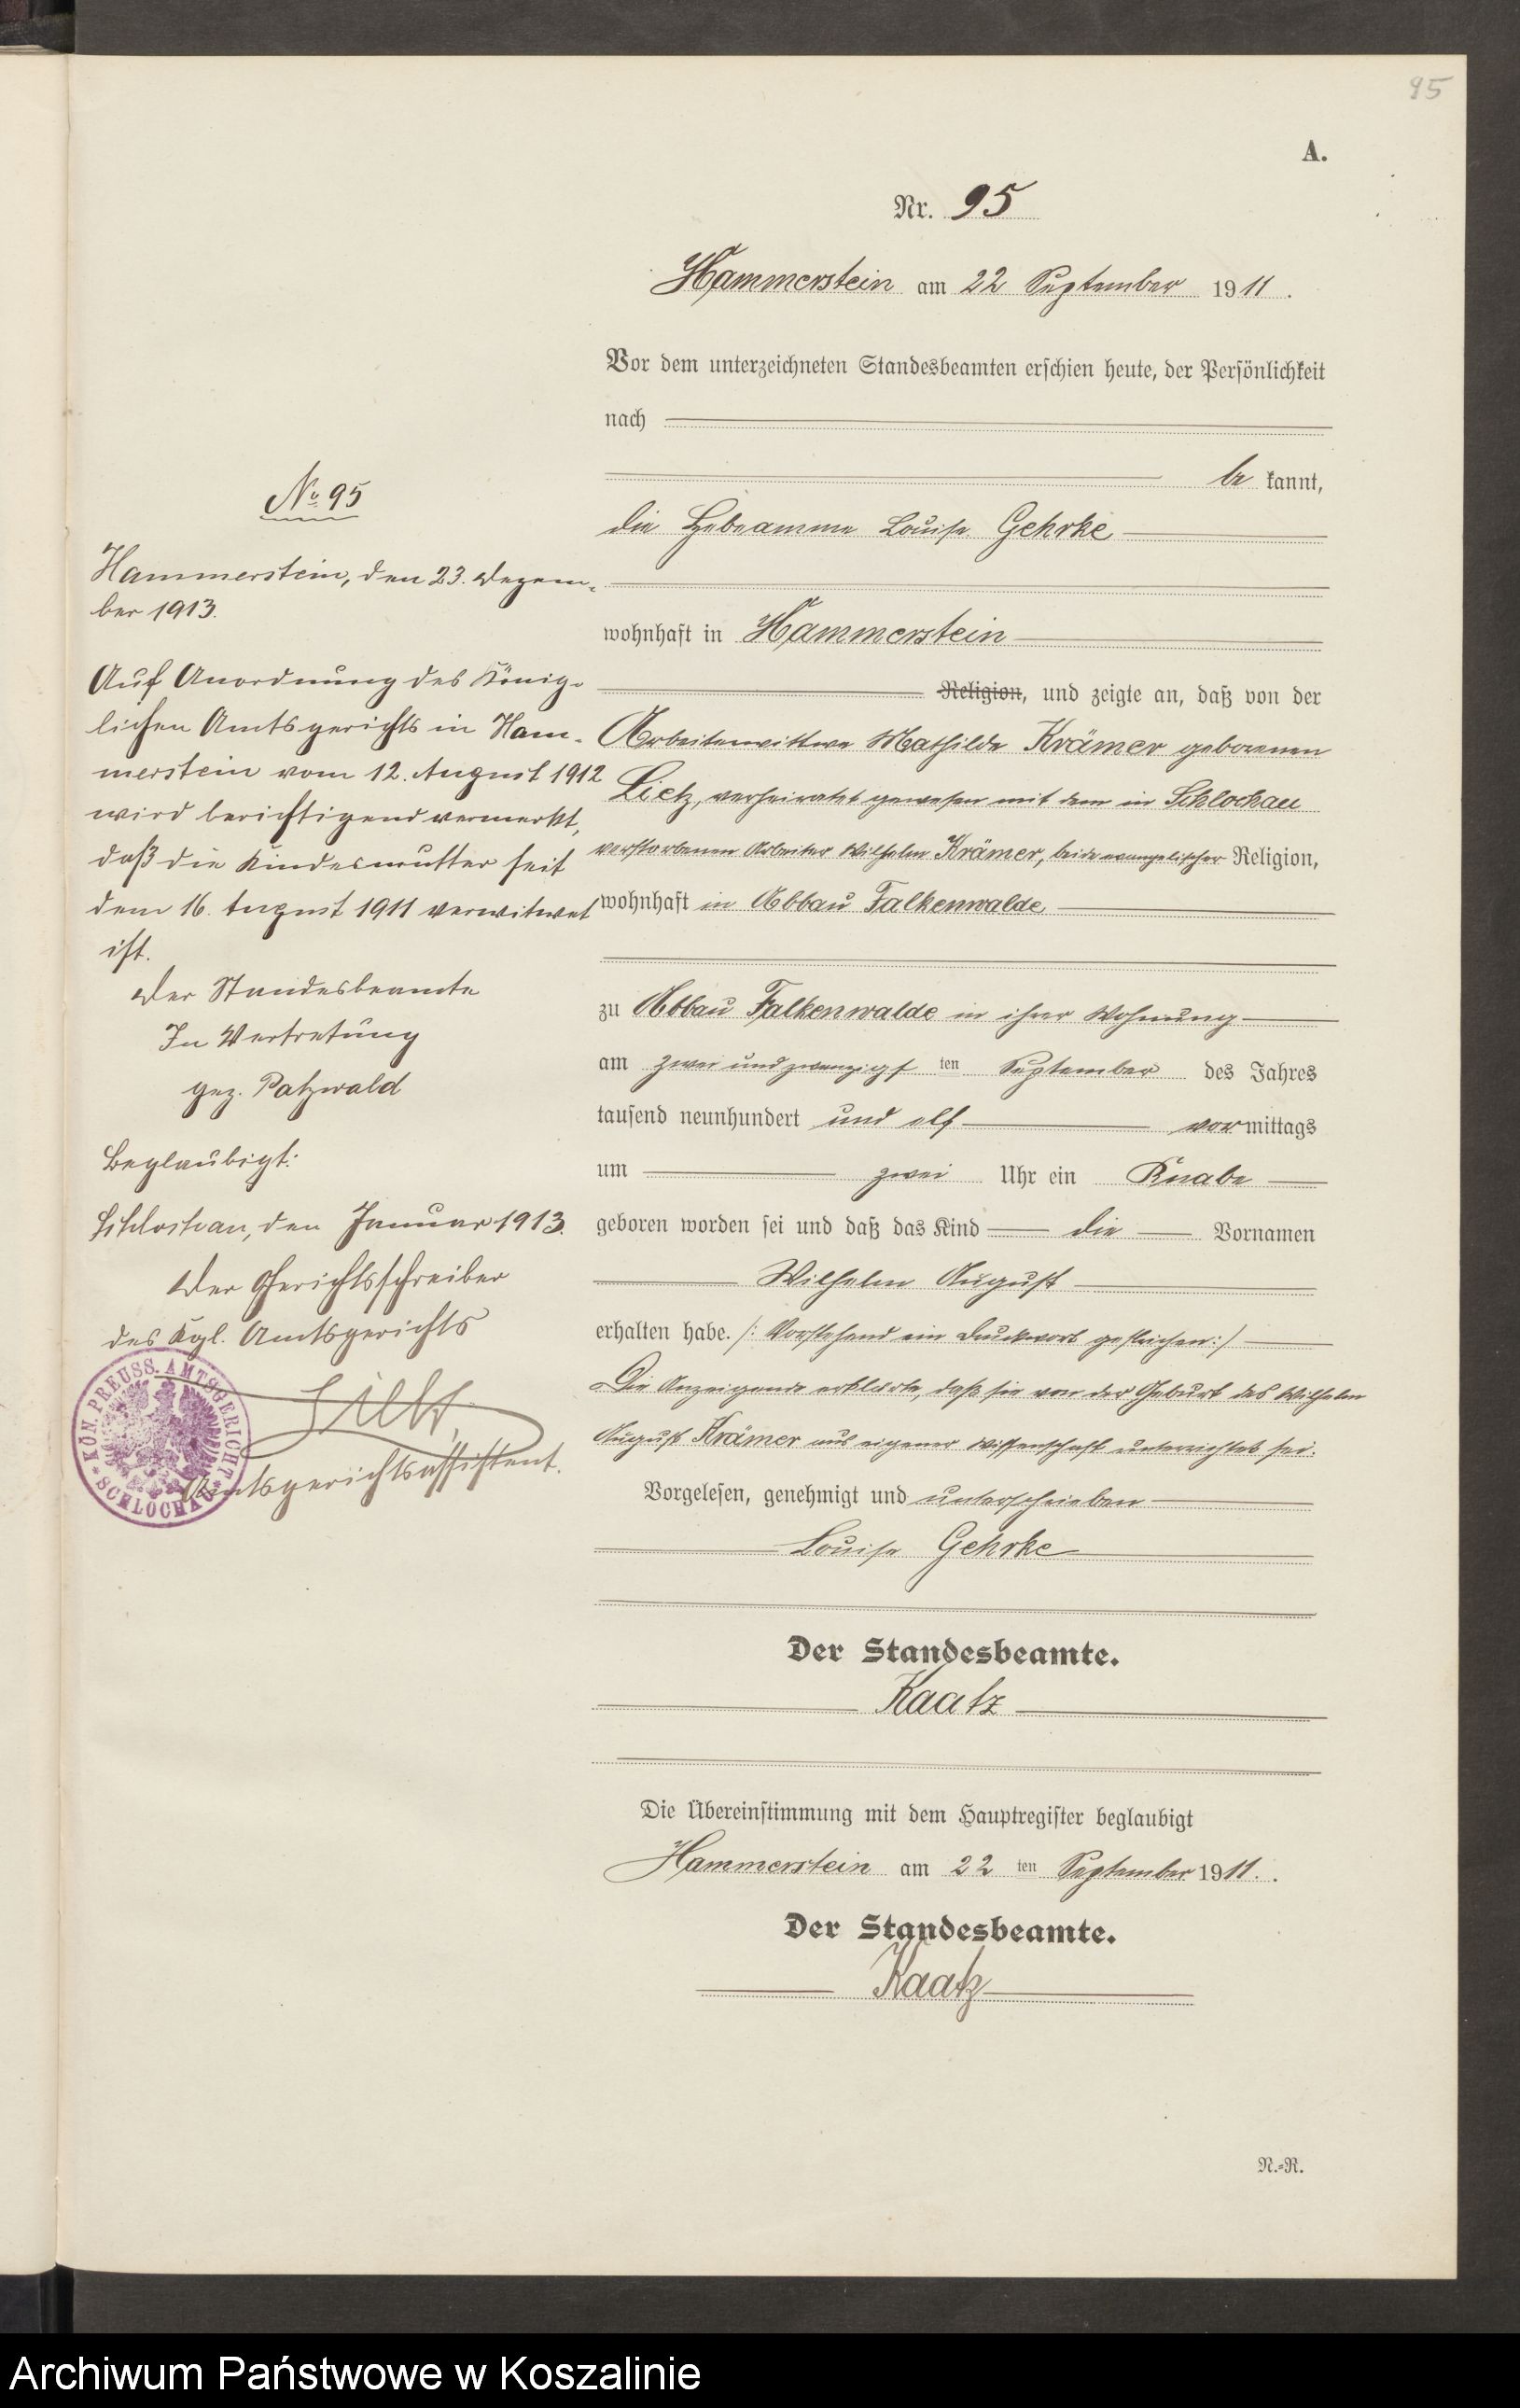 95
A.
Nr. 95
Hammerstein am 22 September 1911.
Vor dem unterzeichneten Standesbeamten erschien heute, der Persönlichkeit
nach
be kannt,
die Hebeamme Louise Gehrke
wohnhaft in Hammerstein
Religion, und zeigte an, daß von der
Arbeiterwittwe Mathilde Krämer geborenen
Lietz, verheirathet gewesen mit dem in Schlochau
verstorbenen Arbeiter Wilhelm Krämer, beide evangelischer Religion,
wohnhaft in Abbau Falkenwalde
zu Abbau Falkenwalde in ihrer Wohnung
am zwei und zwanzigsten September des Jahres
tausend neunhundert und elf vormittags
um zwei Uhr ein Knabe
geboren worden sei und daß das Kind die Vornamen
Wilhelm August
erhalten habe. /: Vorstehend ein Druckwort gestrichen:/
Die Anzeigende erklärte, daß sie von der Geburt des Wilhelm
August Krämer aus eigener Wissenschaft unterrichtet sei.
Vorgelesen, genehmigt und unterschrieben
Louise Gehrke
Der Standesbeamte.
Kaatz
Die Übereinstimmung mit dem Hauptregister beglaubigt
Hammerstein am 22 ten September 1911.
Der Standesbeamte.
Kaatz
N.=R.
No 95
Hammerstein, den 23. Dezem-
ber 1913.
Auf Anordnung des König-
lichen Amtsgerichts in Ham-
merstein vom 12. August 1912
wird berichtigend vermerkt,
daß die Kindesmutter seit
dem 16. August 1911 verwitwet
ist.
Der Standesbeamte
In Vertretung
gez. Patzwald
Beglaubigt:
Schlochau, den Januar 1913.
Der Gerichtsschreiber
des Kgl. Amtsgerichts
Amtsgerichtsassistent.
KÖN. PREUSS. AMTSGERICHT
SCHLOCHAU
Archiwum Państwowe w Koszalinie